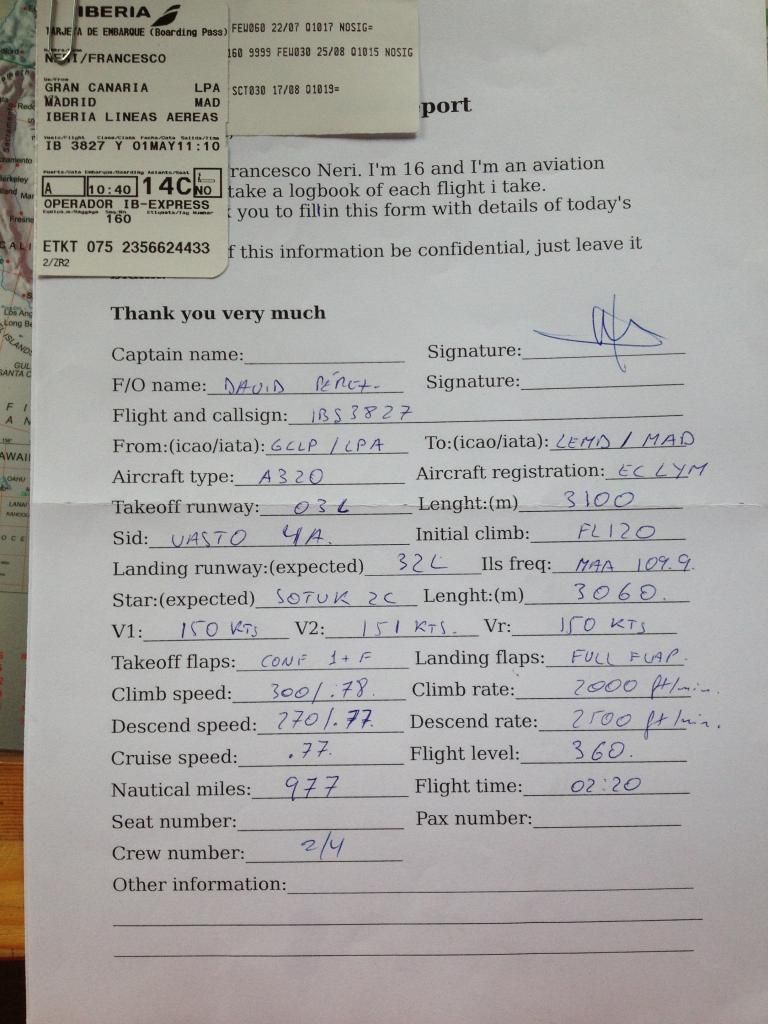 IBERIA
TARJETA DE EMBARQUE (Boarding Pass)
NERI/FRANCESCO
GRAN CANARIA LPA
MADRID MAD
IBERIA LINEAS AEREAS
IB 3827 Y 01MAY11:10
A 10:40 14C NO
OPERADOR IB-EXPRESS
160
ETKT 075 2356624433
2/ZR2
FEW060 22/07 Q1017 NOSIG=
160 9999 FEW030 25/08 Q1015 NOSIG
SCT030 17/08 Q1019=
port
rancesco Neri. I'm 16 and I'm an aviation
take a logbook of each flight i take.
you to fill in this form with details of today's
f this information be confidential, just leave it
Thank you very much
Captain name: Signature:
F/O name: DAVID PÉREZ. Signature:
Flight and callsign: IBS3827
From:(icao/iata): GCLP / LPA To:(icao/iata): LEMD / MAD
Aircraft type: A320 Aircraft registration: EC LYM
Takeoff runway: 03L Lenght:(m) 3100
Sid: VASTO 4A. Initial climb: FL120
Landing runway:(expected) 32L Ils freq: MAA 109.9.
Star:(expected) SOTUK 2C Lenght:(m) 3060.
V1: 150 KTS V2: 151 KTS. Vr: 150 KTS
Takeoff flaps: CONF 1+F Landing flaps: FULL FLAP.
Climb speed: 300/.78. Climb rate: 2000 ft/min.
Descend speed: 270/.77. Descend rate: 2500 ft/min.
Cruise speed: .77. Flight level: 360.
Nautical miles: 977 Flight time: 02:20
Seat number: Pax number:
Crew number: 2/4
Other information: